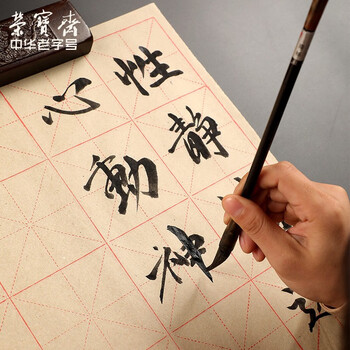 榮寶齋
中华老字号
性靜
心動神